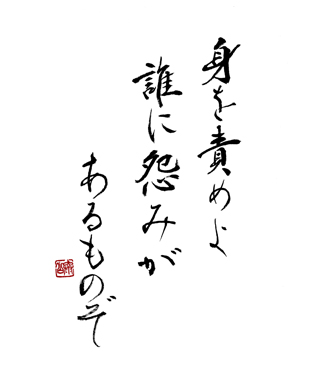 身を責めよ
誰に怨みが
あるものぞ